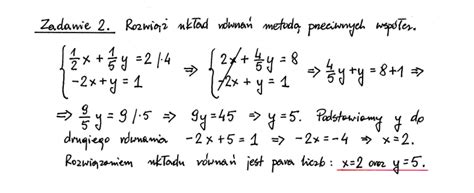 Zadanie 2. Rozwiąż układ równań metodą przeciwnych współcz.
{ 1/2 x + 1/5 y = 2 /·4 ⇒ { 2x + 4/5 y = 8 ⇒ 4/5 y + y = 8 + 1 ⇒
-2x + y = 1 -2x + y = 1
⇒ 9/5 y = 9 /·5 ⇒ 9y = 45 ⇒ y = 5. Podstawiamy y do
drugiego równania -2x + 5 = 1 ⇒ -2x = -4 ⇒ x = 2.
Rozwiązaniem układu równań jest para liczb: x=2 oraz y=5.